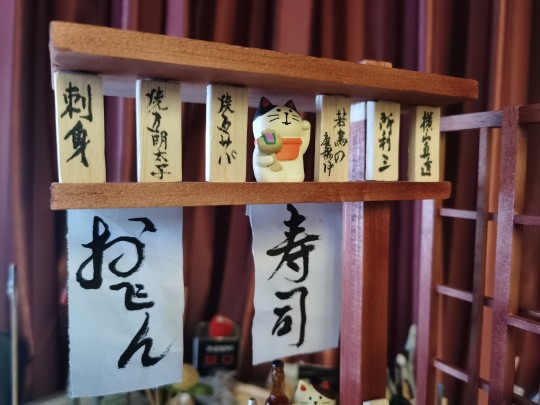 刺身
焼き明太子
焼きサバ
若鳥の
唐揚げ
おでん
寿司